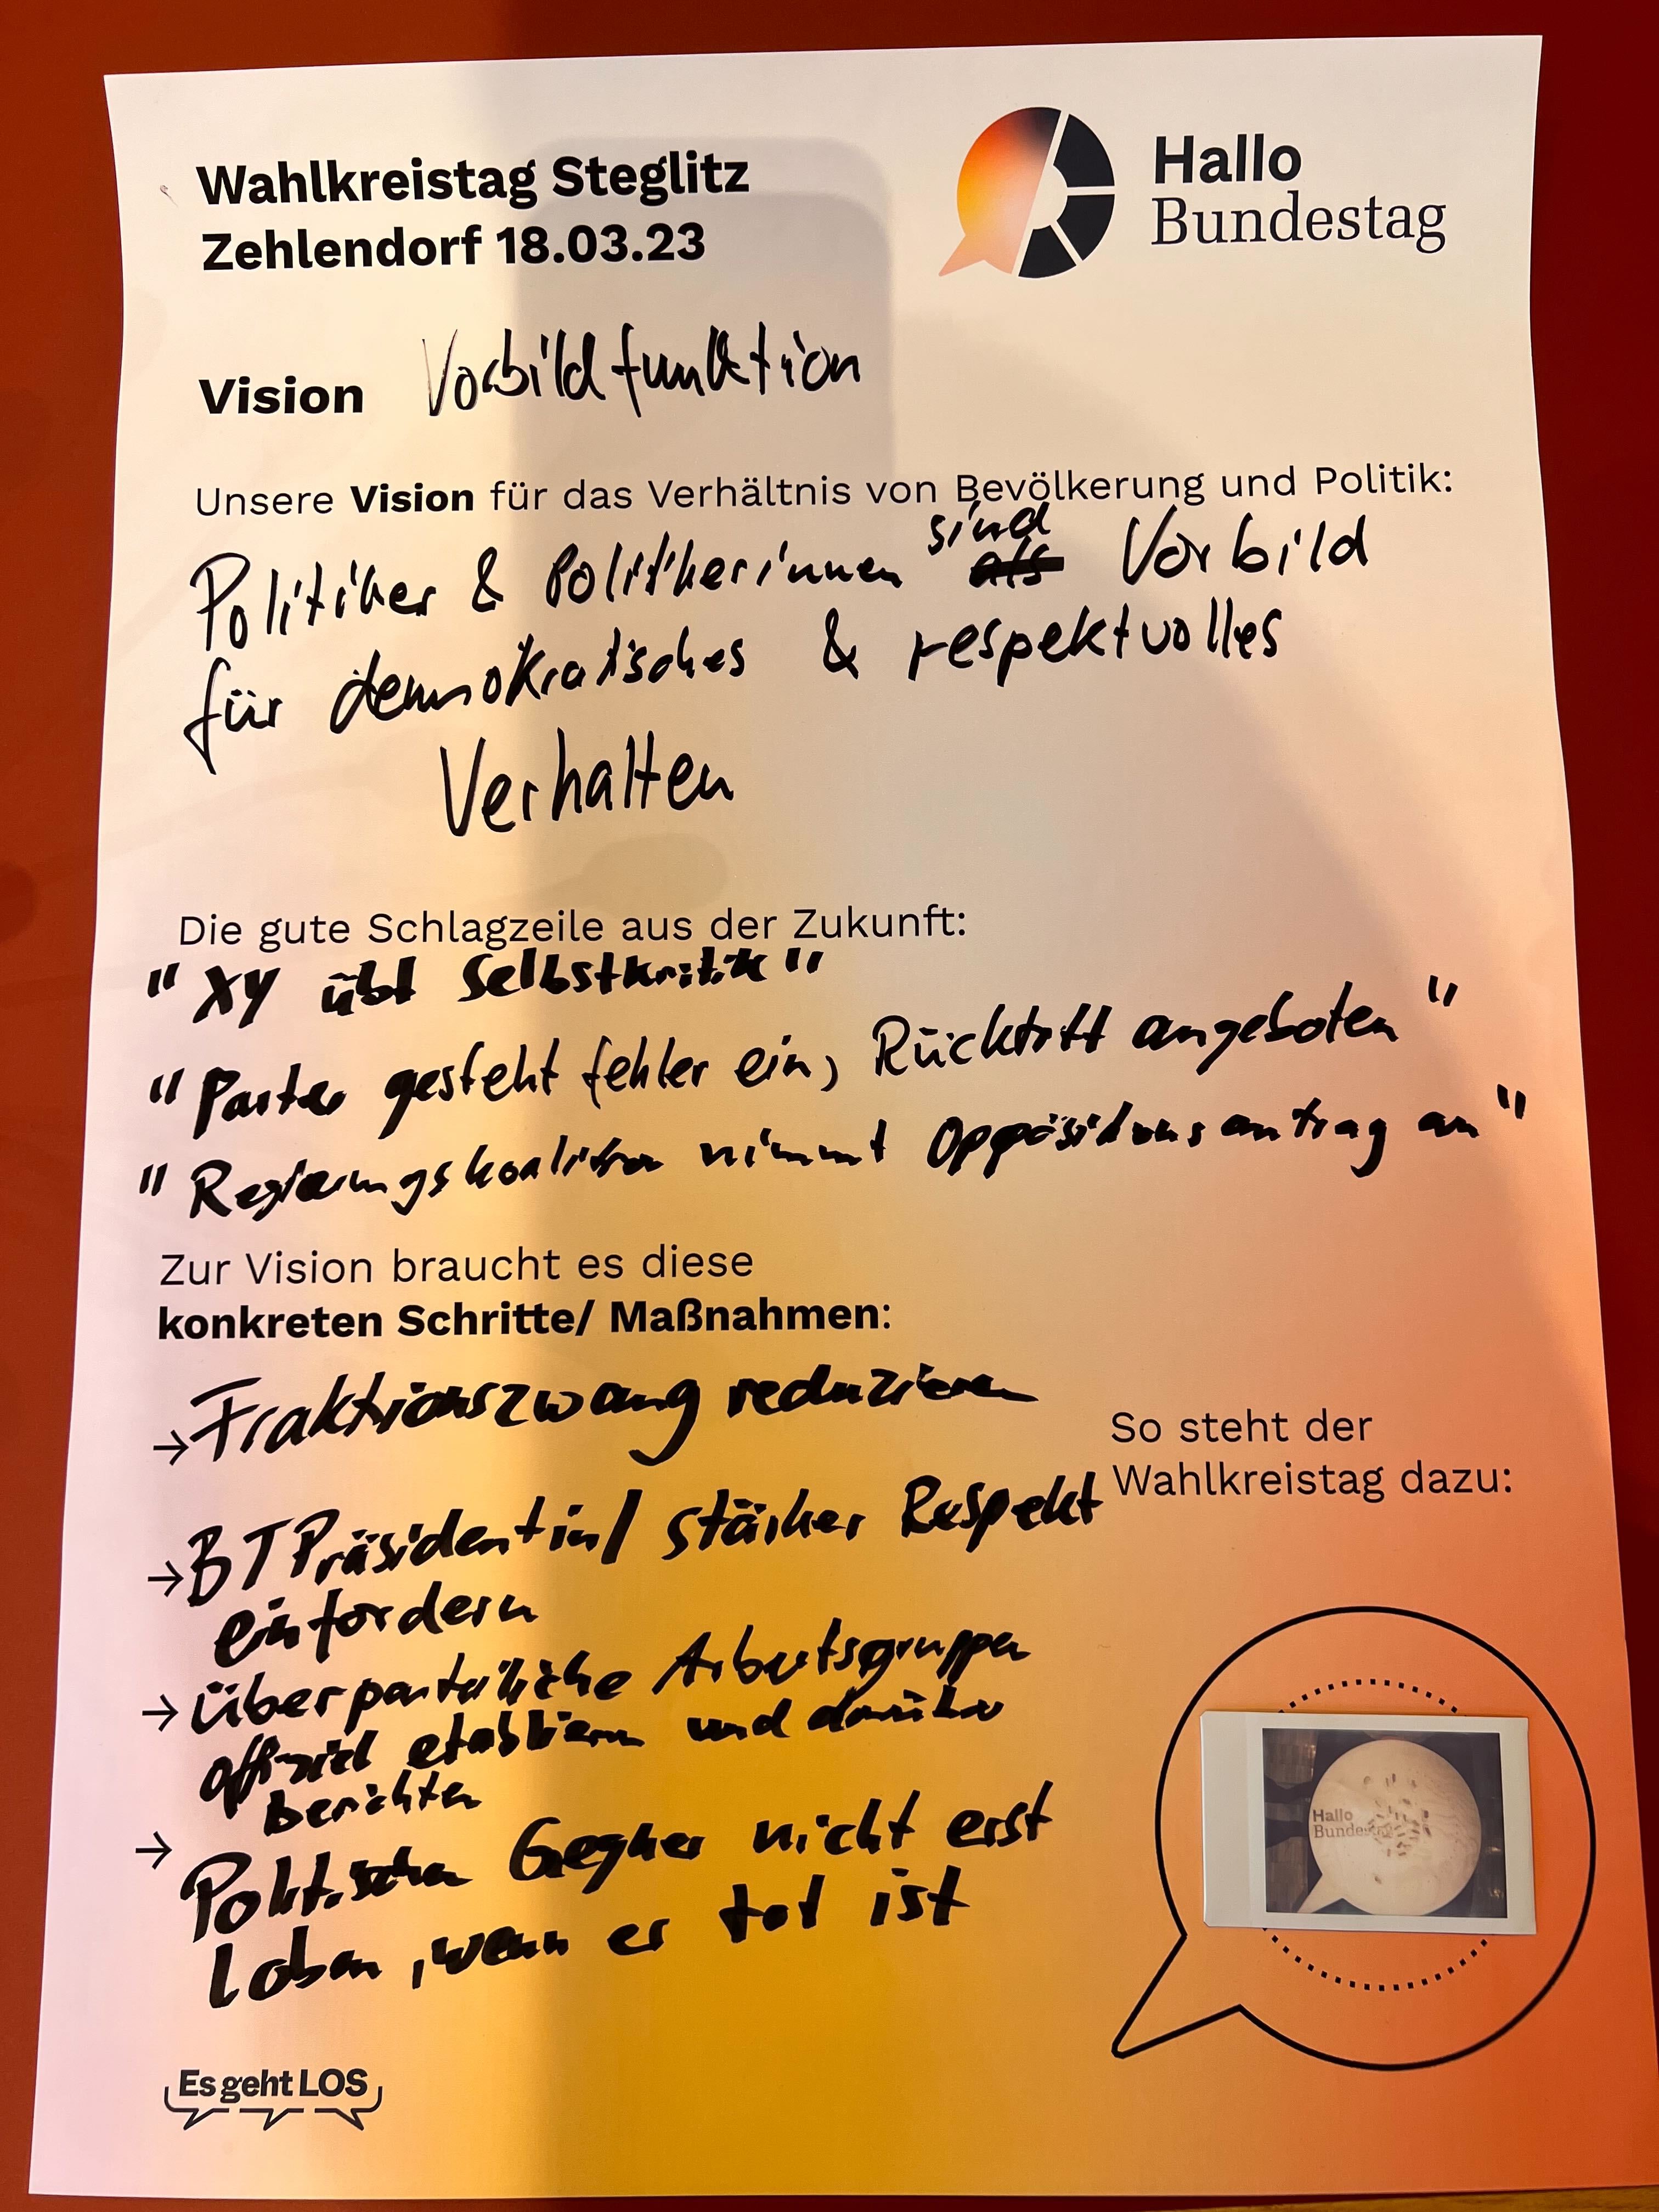 Wahlkreistag Steglitz
Zehlendorf 18.03.23
Hallo
Bundestag
Vision Vorbildfunktion
Unsere Vision für das Verhältnis von Bevölkerung und Politik:
Politiker & Politikerinnen sind als Vorbild
für demokratisches & respektvolles
Verhalten
Die gute Schlagzeile aus der Zukunft:
"XY übt Selbstkritik"
"Partei gesteht fehler ein, Rücktritt angeboten"
"Regierungskoalition nimmt Oppositionsantrag an"
Zur Vision braucht es diese
konkreten Schritte/ Maßnahmen:
→ Fraktionszwang reduzieren
→ BT Präsidentin/ stärker Respekt
einfordern
→ überparteiliche Arbeitsgruppen
offiziel etablieren und darüber
berichten
→ Politischen Gegner nicht erst
loben, wenn er tot ist
So steht der
Wahlkreistag dazu:
Hallo
Bundestag
Es geht LOS